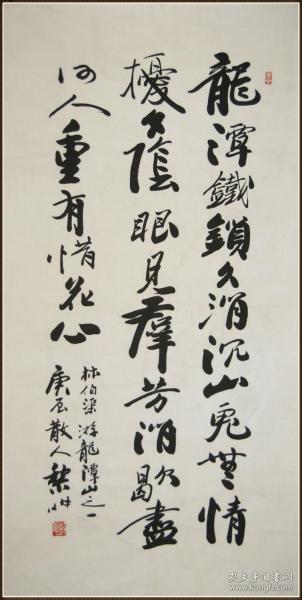 龍潭鐵鎖久消沉山鬼無情
擾久陰眼見群芳消欲盡
何人重有惜花心
林伯渠游龍潭山之一
庚辰散人
孔夫子旧书网
www.kongfz.com